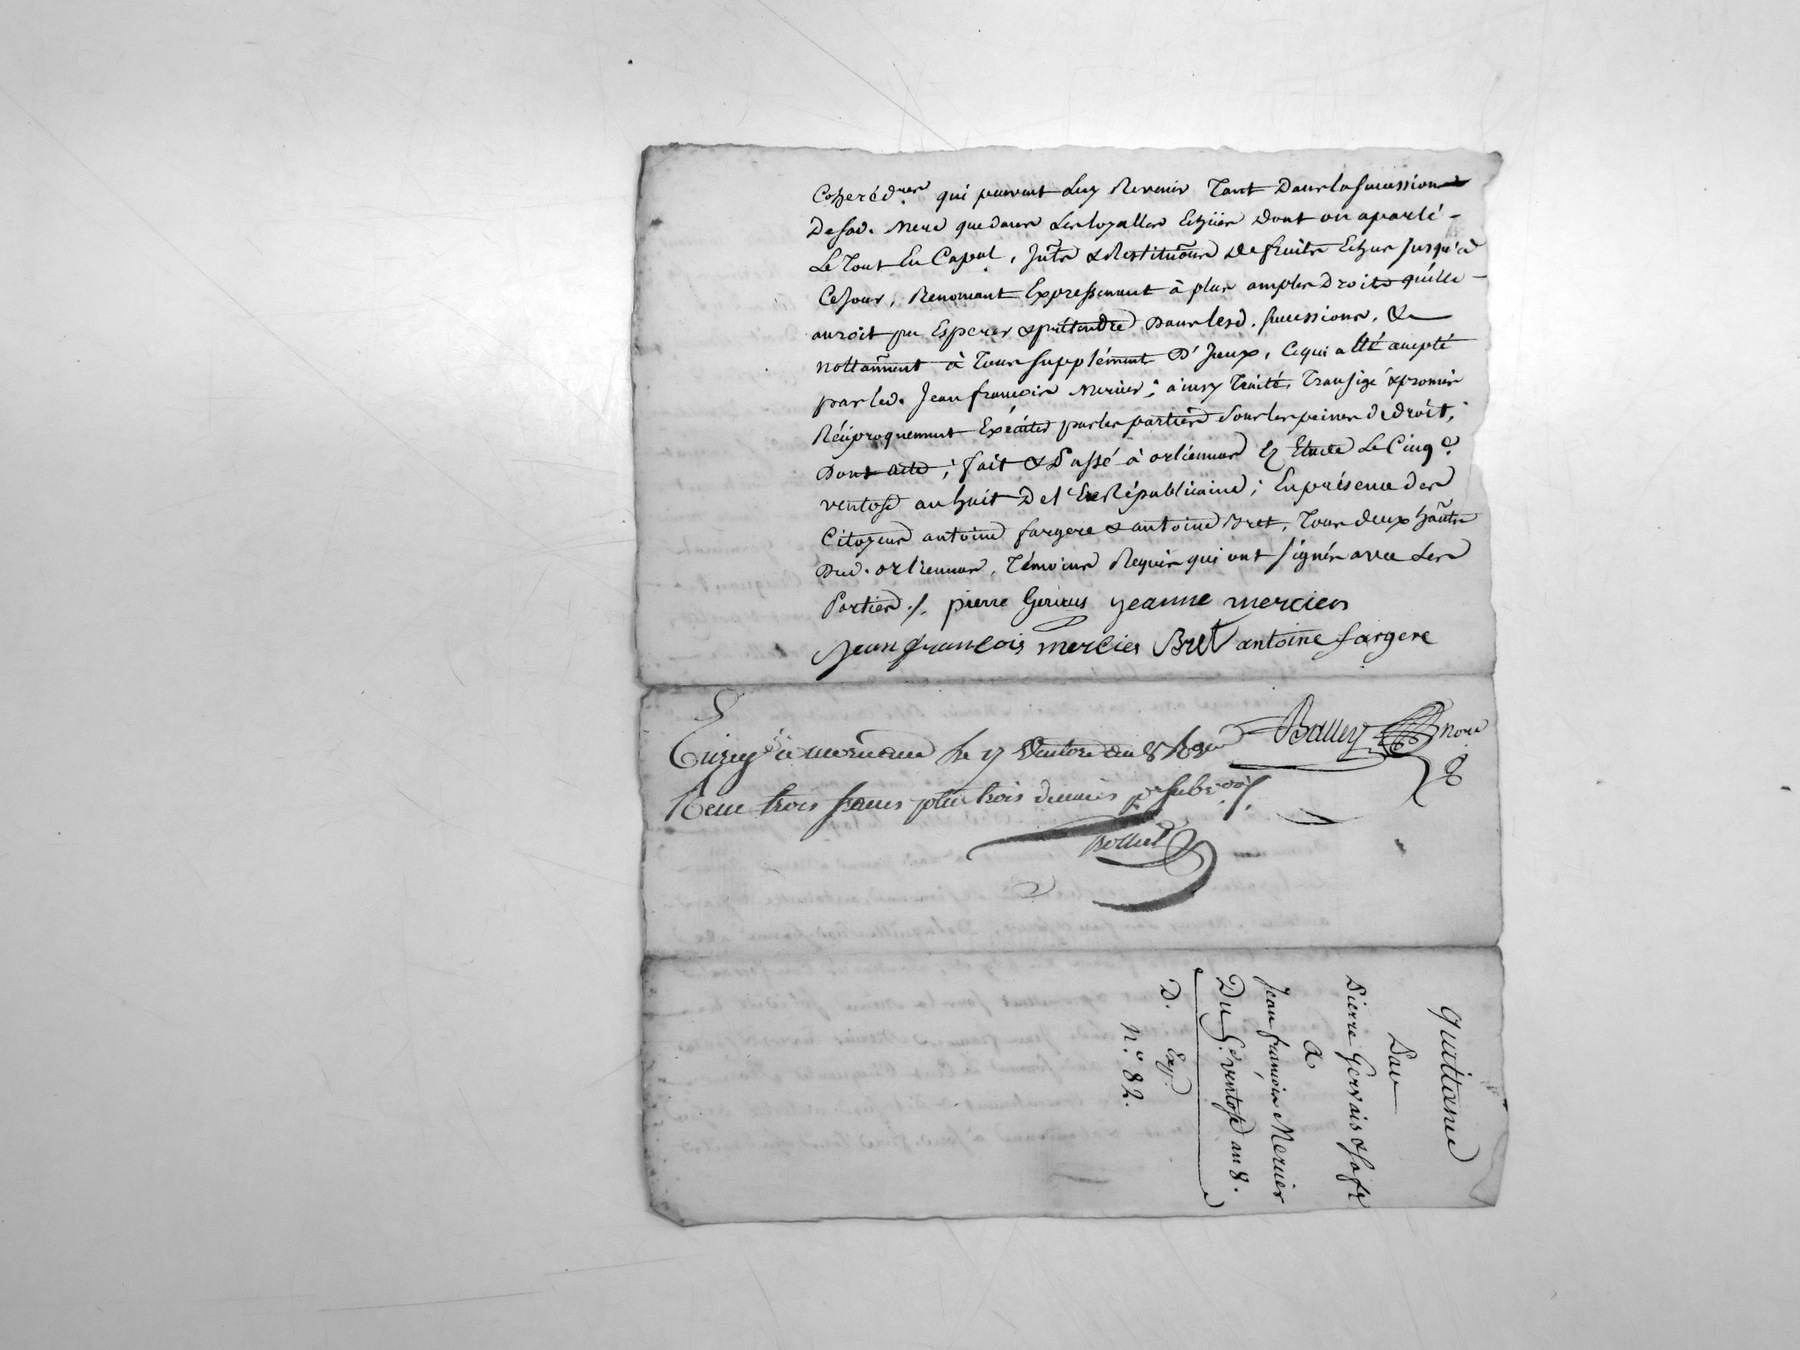 qui peuvent Luy Revenir Tant Dans la succession
De sad. Mere que dans Les loyalles Echües dont on a parlé -
Le Tout En Capal, Intts & Restitutions De fruits Echus Jusqu'à
Ce Jour, Renonçant Expressement à plus amples Droits quille -
auroit pu Esperer & prettendre Dans lesd. successions, &
nottamment à Tous supplément D' Jceux, Ce qui a été accepté
par led. Jean françois Mercier; ainsy Traité, Transigé & promis
Réciproquement Exécuter par les parties sous les peines de droit,
Dont acte; fait & Passé à orliennas Ez Etude Le Cinq e.
ventose an huit De l'Ere Républicaine; En présence des
Citoyens antoine fargere & antoine Bret, Tous deux hants
Dud. orliennas, Témoins Requis qui ont signés avec Les
Parties ./. pierre Gervais jeanne mercier
jean françois mercier Bret antoine fargere
Balley nore
Enreg à mornant le 7 Ventose an 8
Reçu trois francs plus trois decimes pr Subv.on
Quittance
Par
Pierre Gervais & sa fe
a
Jean françois Mercier
Du 5e. ventose an 8.
D. Exp.
N.o 82.